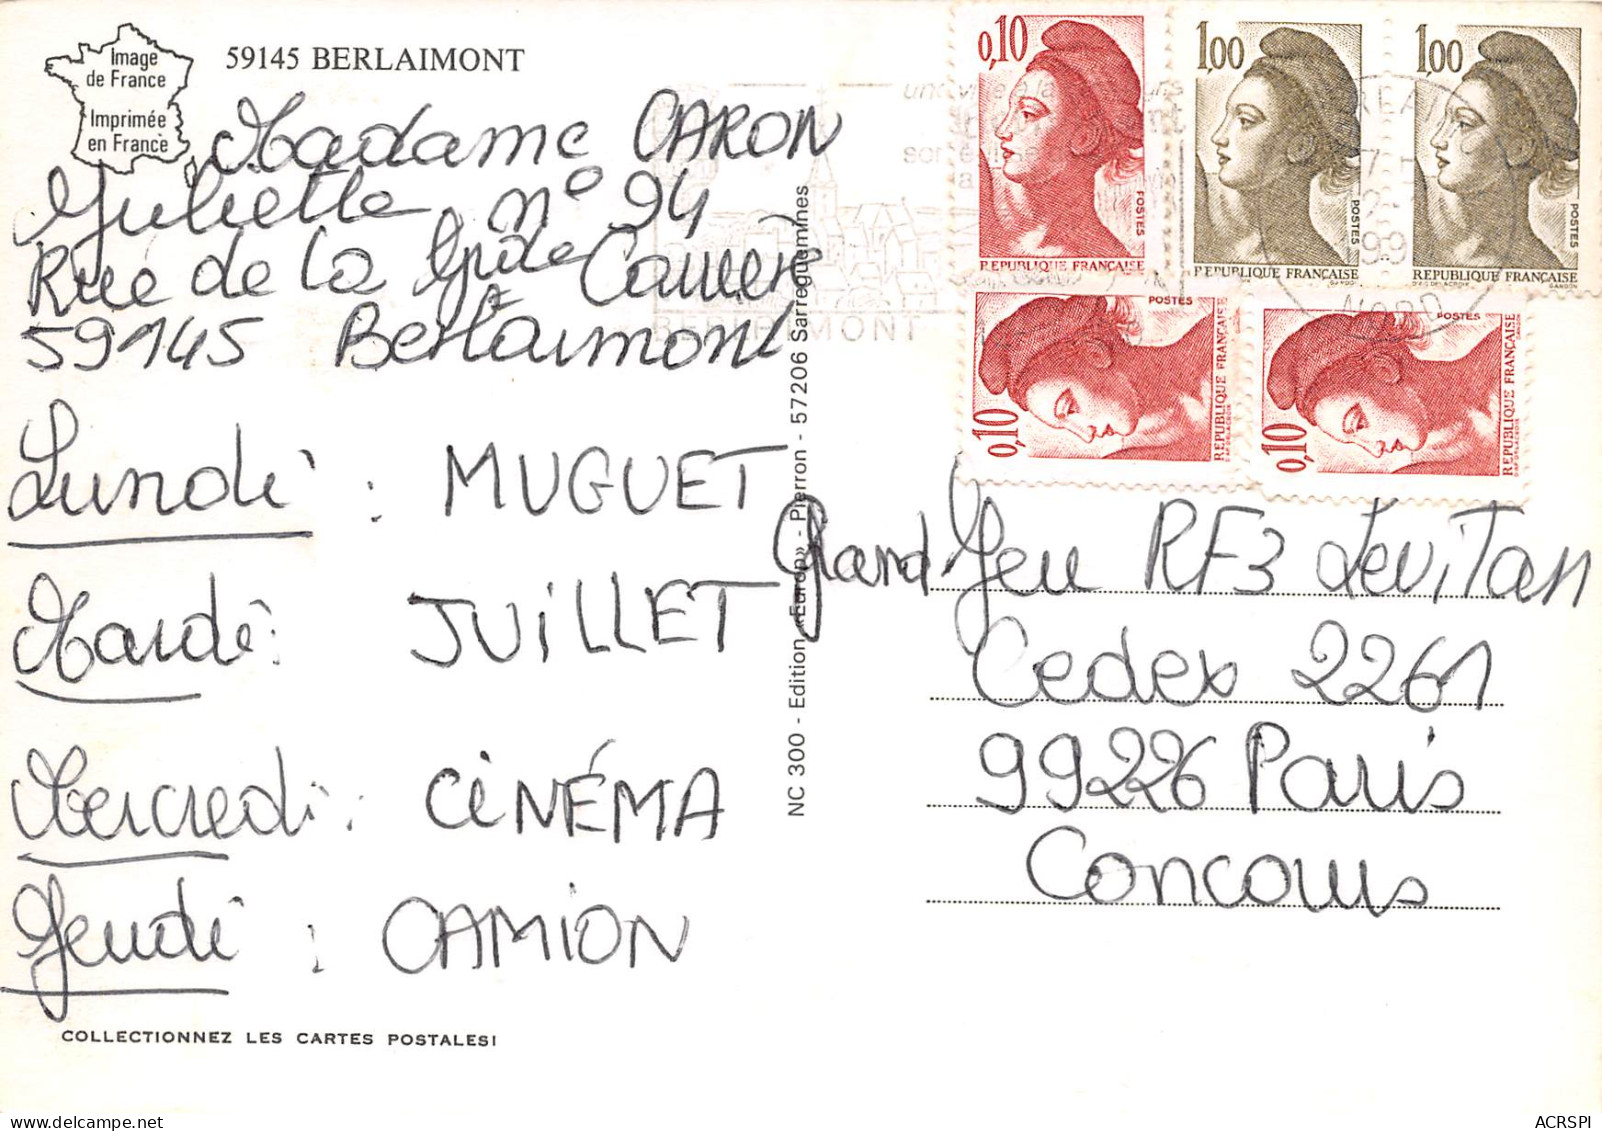 Image
de France
Imprimée
en France
59145 BERLAIMONT
Madame CARON
Juliette n° 94
Rue de la Gde Carrière
59145 Berlaimont
Lundi : MUGUET
Mardi : JUILLET
Mercredi : CINÉMA
Jeudi : CAMION
COLLECTIONNEZ LES CARTES POSTALES!
NC 300 - Edition «Europ» - Pierron - 57206 Sarreguemines
0,10
POSTES
REPUBLIQUE FRANÇAISE
1,00
POSTES
REPUBLIQUE FRANÇAISE
1,00
POSTES
REPUBLIQUE FRANÇAISE
0,10
POSTES
REPUBLIQUE FRANÇAISE
0,10
POSTES
REPUBLIQUE FRANÇAISE
BERLAIMONT
NORD
Grand Jeu RF3 Levitan
Cedex 2261
99226 Paris
Concours
ACRSPI